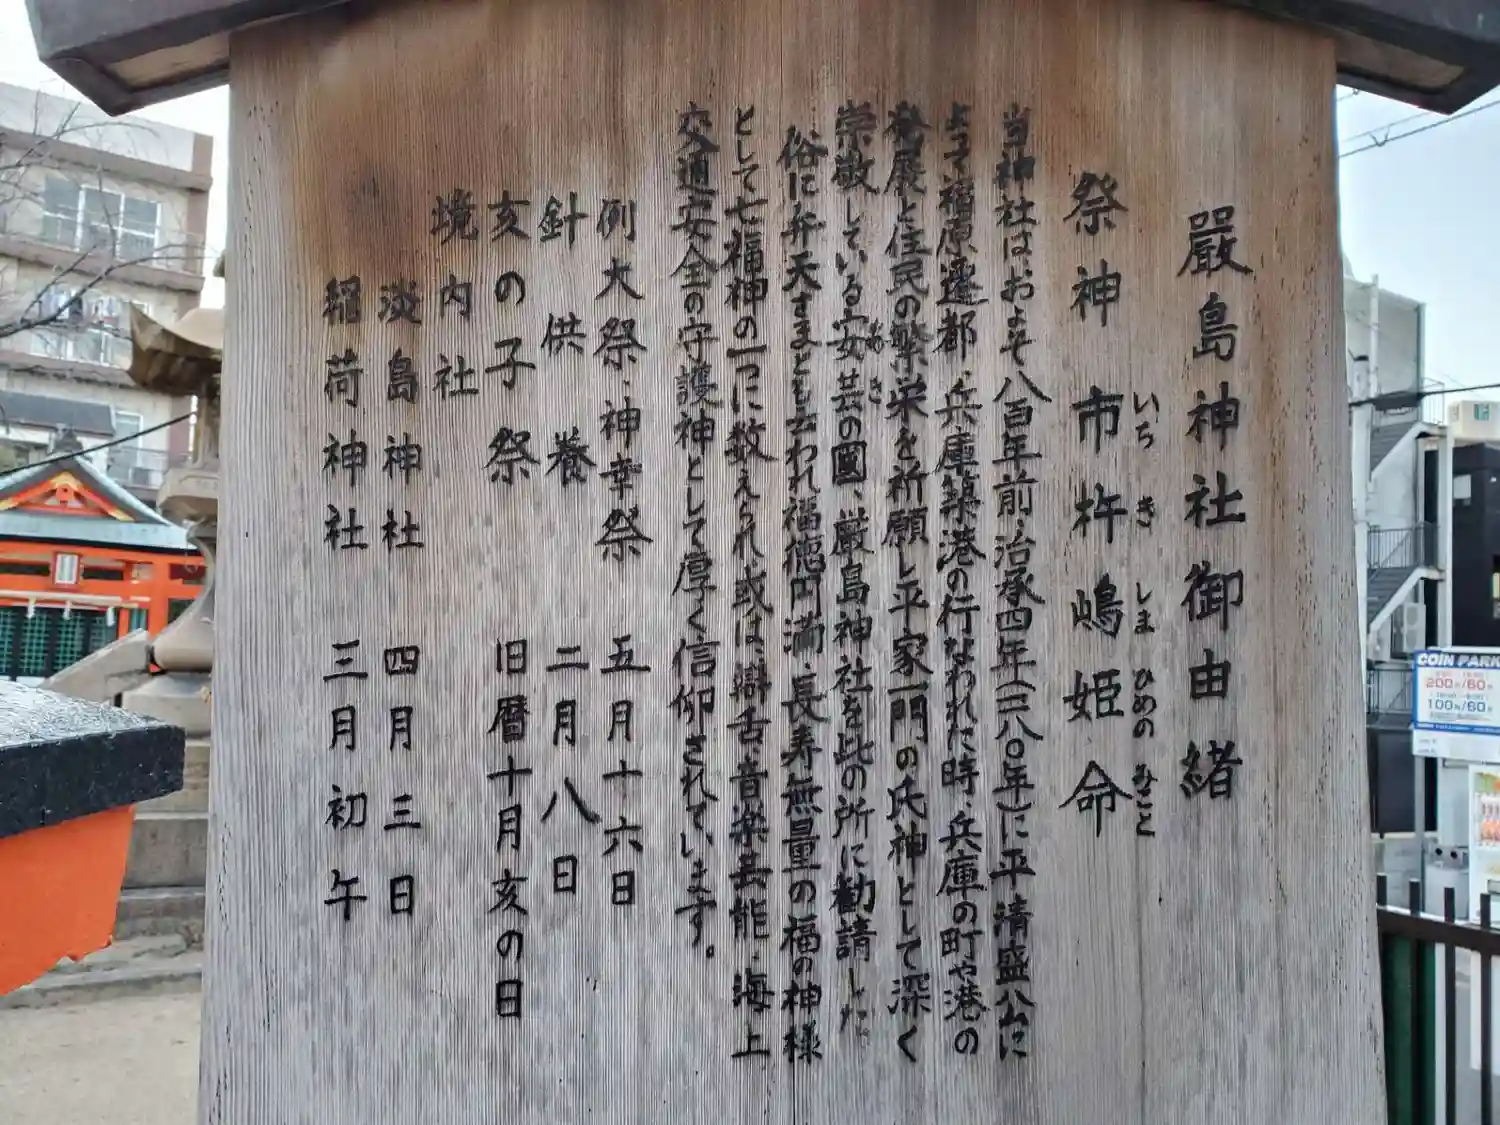 嚴島神社御由緒
祭神 市杵嶋姫命
いち き しま ひめの みこと
当神社は、およそ八百年前、治承四年(一一八〇年)に平清盛公に
よって福原遷都、兵庫築港の行なわれた時、兵庫の町や港の
発展と住民の繁栄を祈願し平家一門の氏神として深く
崇敬している安芸の國、厳島神社を此の所に勧請した。
あき
俗に弁天さまとも云われ福徳円満、長寿無量の福の神様
として七福神の一つに数えられ、或は、辯舌、音楽芸能、海上
交通安全の守護神として厚く信仰されています。
例大祭、神幸祭 五月十六日
針供養 二月八日
亥の子祭 旧暦十月亥の日
境内社
淡島神社 四月三日
稲荷神社 三月初午
COIN PARK
200円/60分
100円/60分